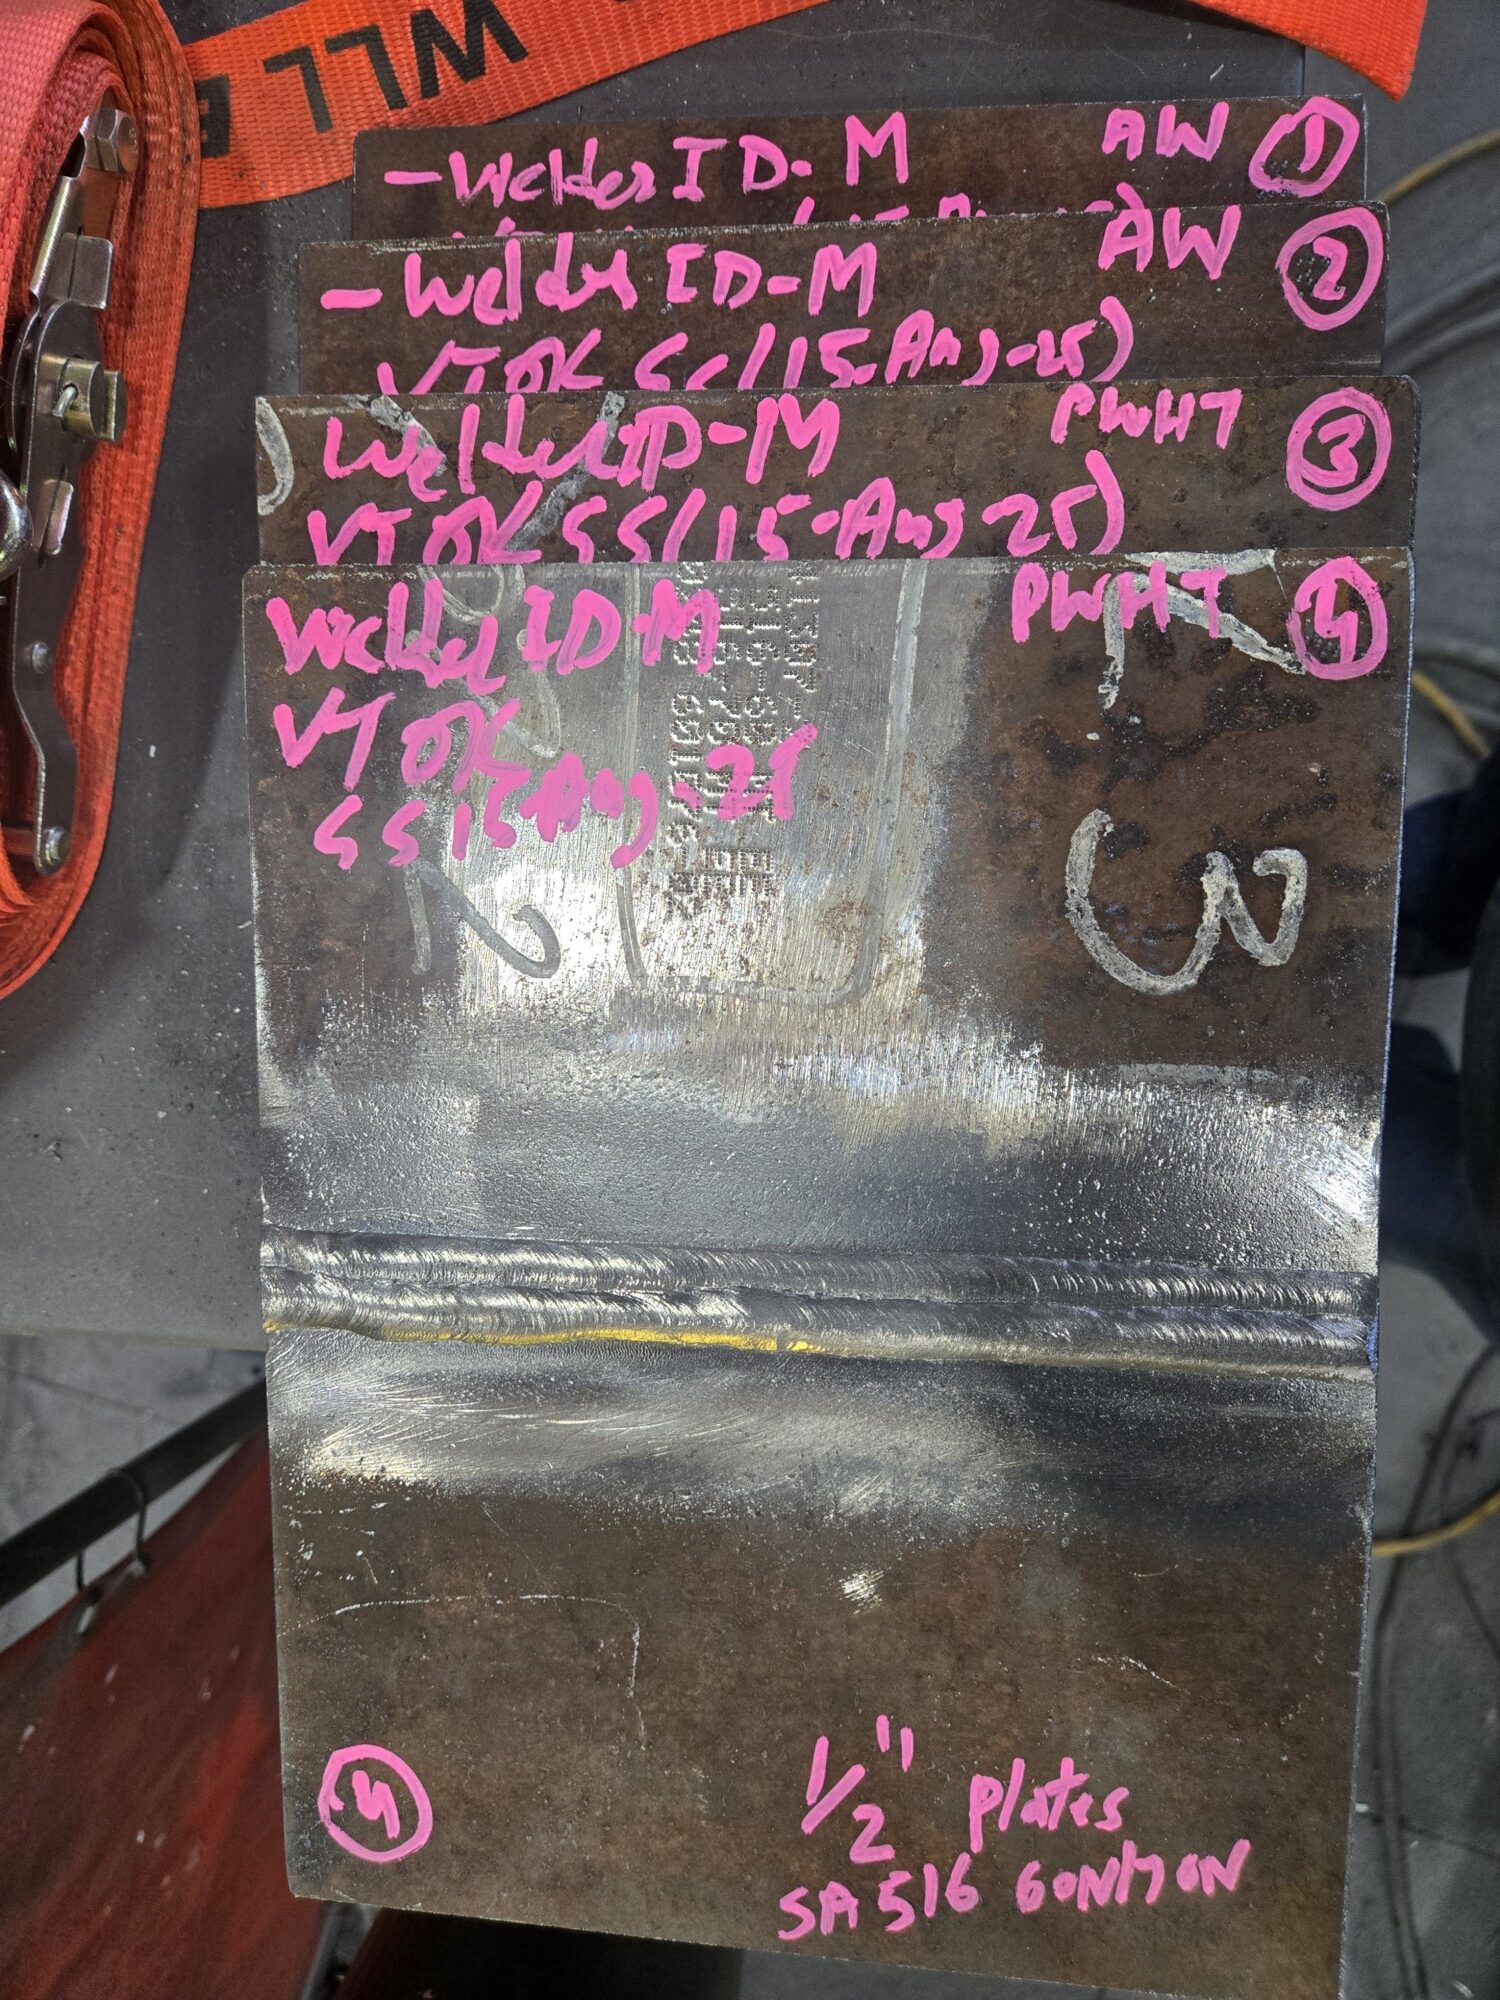 WLL
-Welder ID-M AW 1
-Welder ID-M AW 2
VT OK SS (15-Aug-25)
Welder ID-M PWHT 3
VT OK SS (15-Aug-25)
Welder ID-M PWHT 4
VT OK
SS 15-Aug-25
3
4
1/2" plates
SA 516 60N/70N